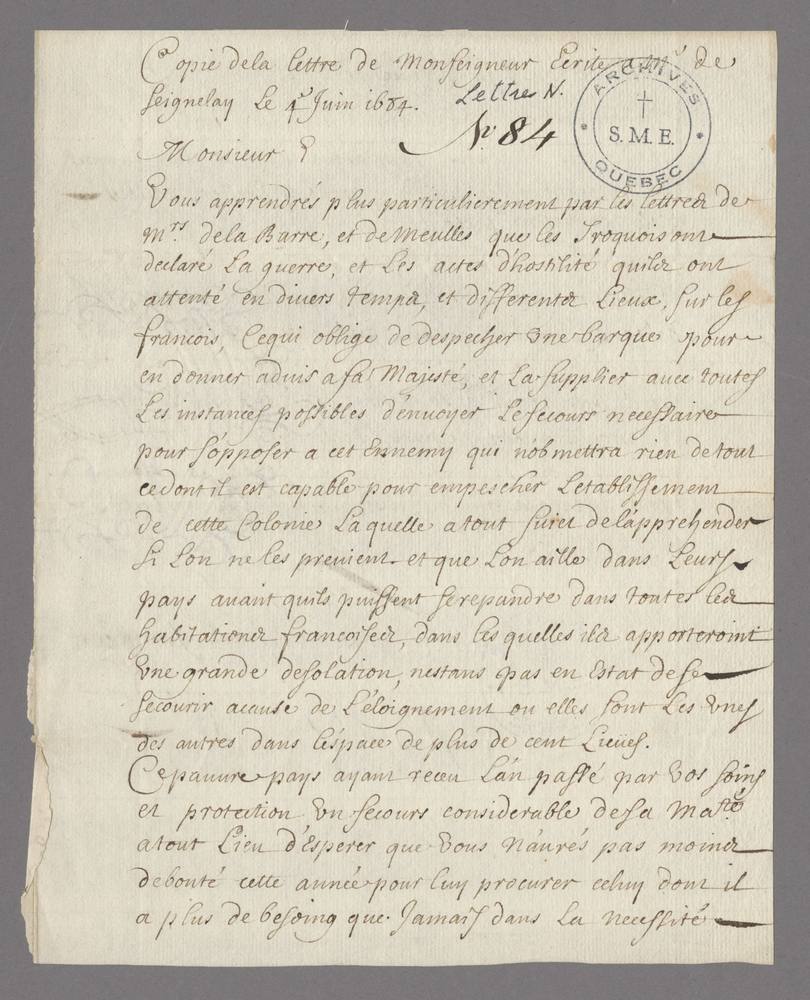 Copie dela lettre de Monseigneur Ecrite a Mr de
Seignelay Le 4e Juin 1684.
Lettres N.
No. 84
ARCHIVES
S. M. E.
QUEBEC
Monsieur
Vous apprendrés plus particulierement par les lettres de
Mrs. dela Barre, et de Meulles que les Iroquois ont
declaré La guerre, et Les actes d'hostilité quils ont
attenté en divers temps, et differents Lieux, sur les
françois, Cequi oblige de despecher vne barque pour
en donner aduis a sa Majesté, et La supplier auec toutes
Les instances possibles d'enuoyer Le secours necessaire
pour s'opposer a cet Ennemy qui n'obmettra rien de tout
cedont il est capable pour empescher Letablissement
de cette Colonie Laquelle a tout suiet de l'apprehender
si Lon ne les preuient et que Lon aille dans Leurs
pays auant quils puissent se repandre dans toutes les
habitations francoises, dans les quelles ils apporteroint
vne grande desolation, nestans pas en Estat de se
secourir acause de L'éloignement ou elles sont Les vnes
des autres dans l'espace de plus de cent Lieües.
Ce pauure pays ayant receu L'an passé par vos soins
et protection vn secours considerable de sa Maté
a tout Lieu d'Esperer que vous n'aurés pas moins
de bonté cette année pour luy procurer celuy dont il
a plus de besoing que Jamais dans La necessité